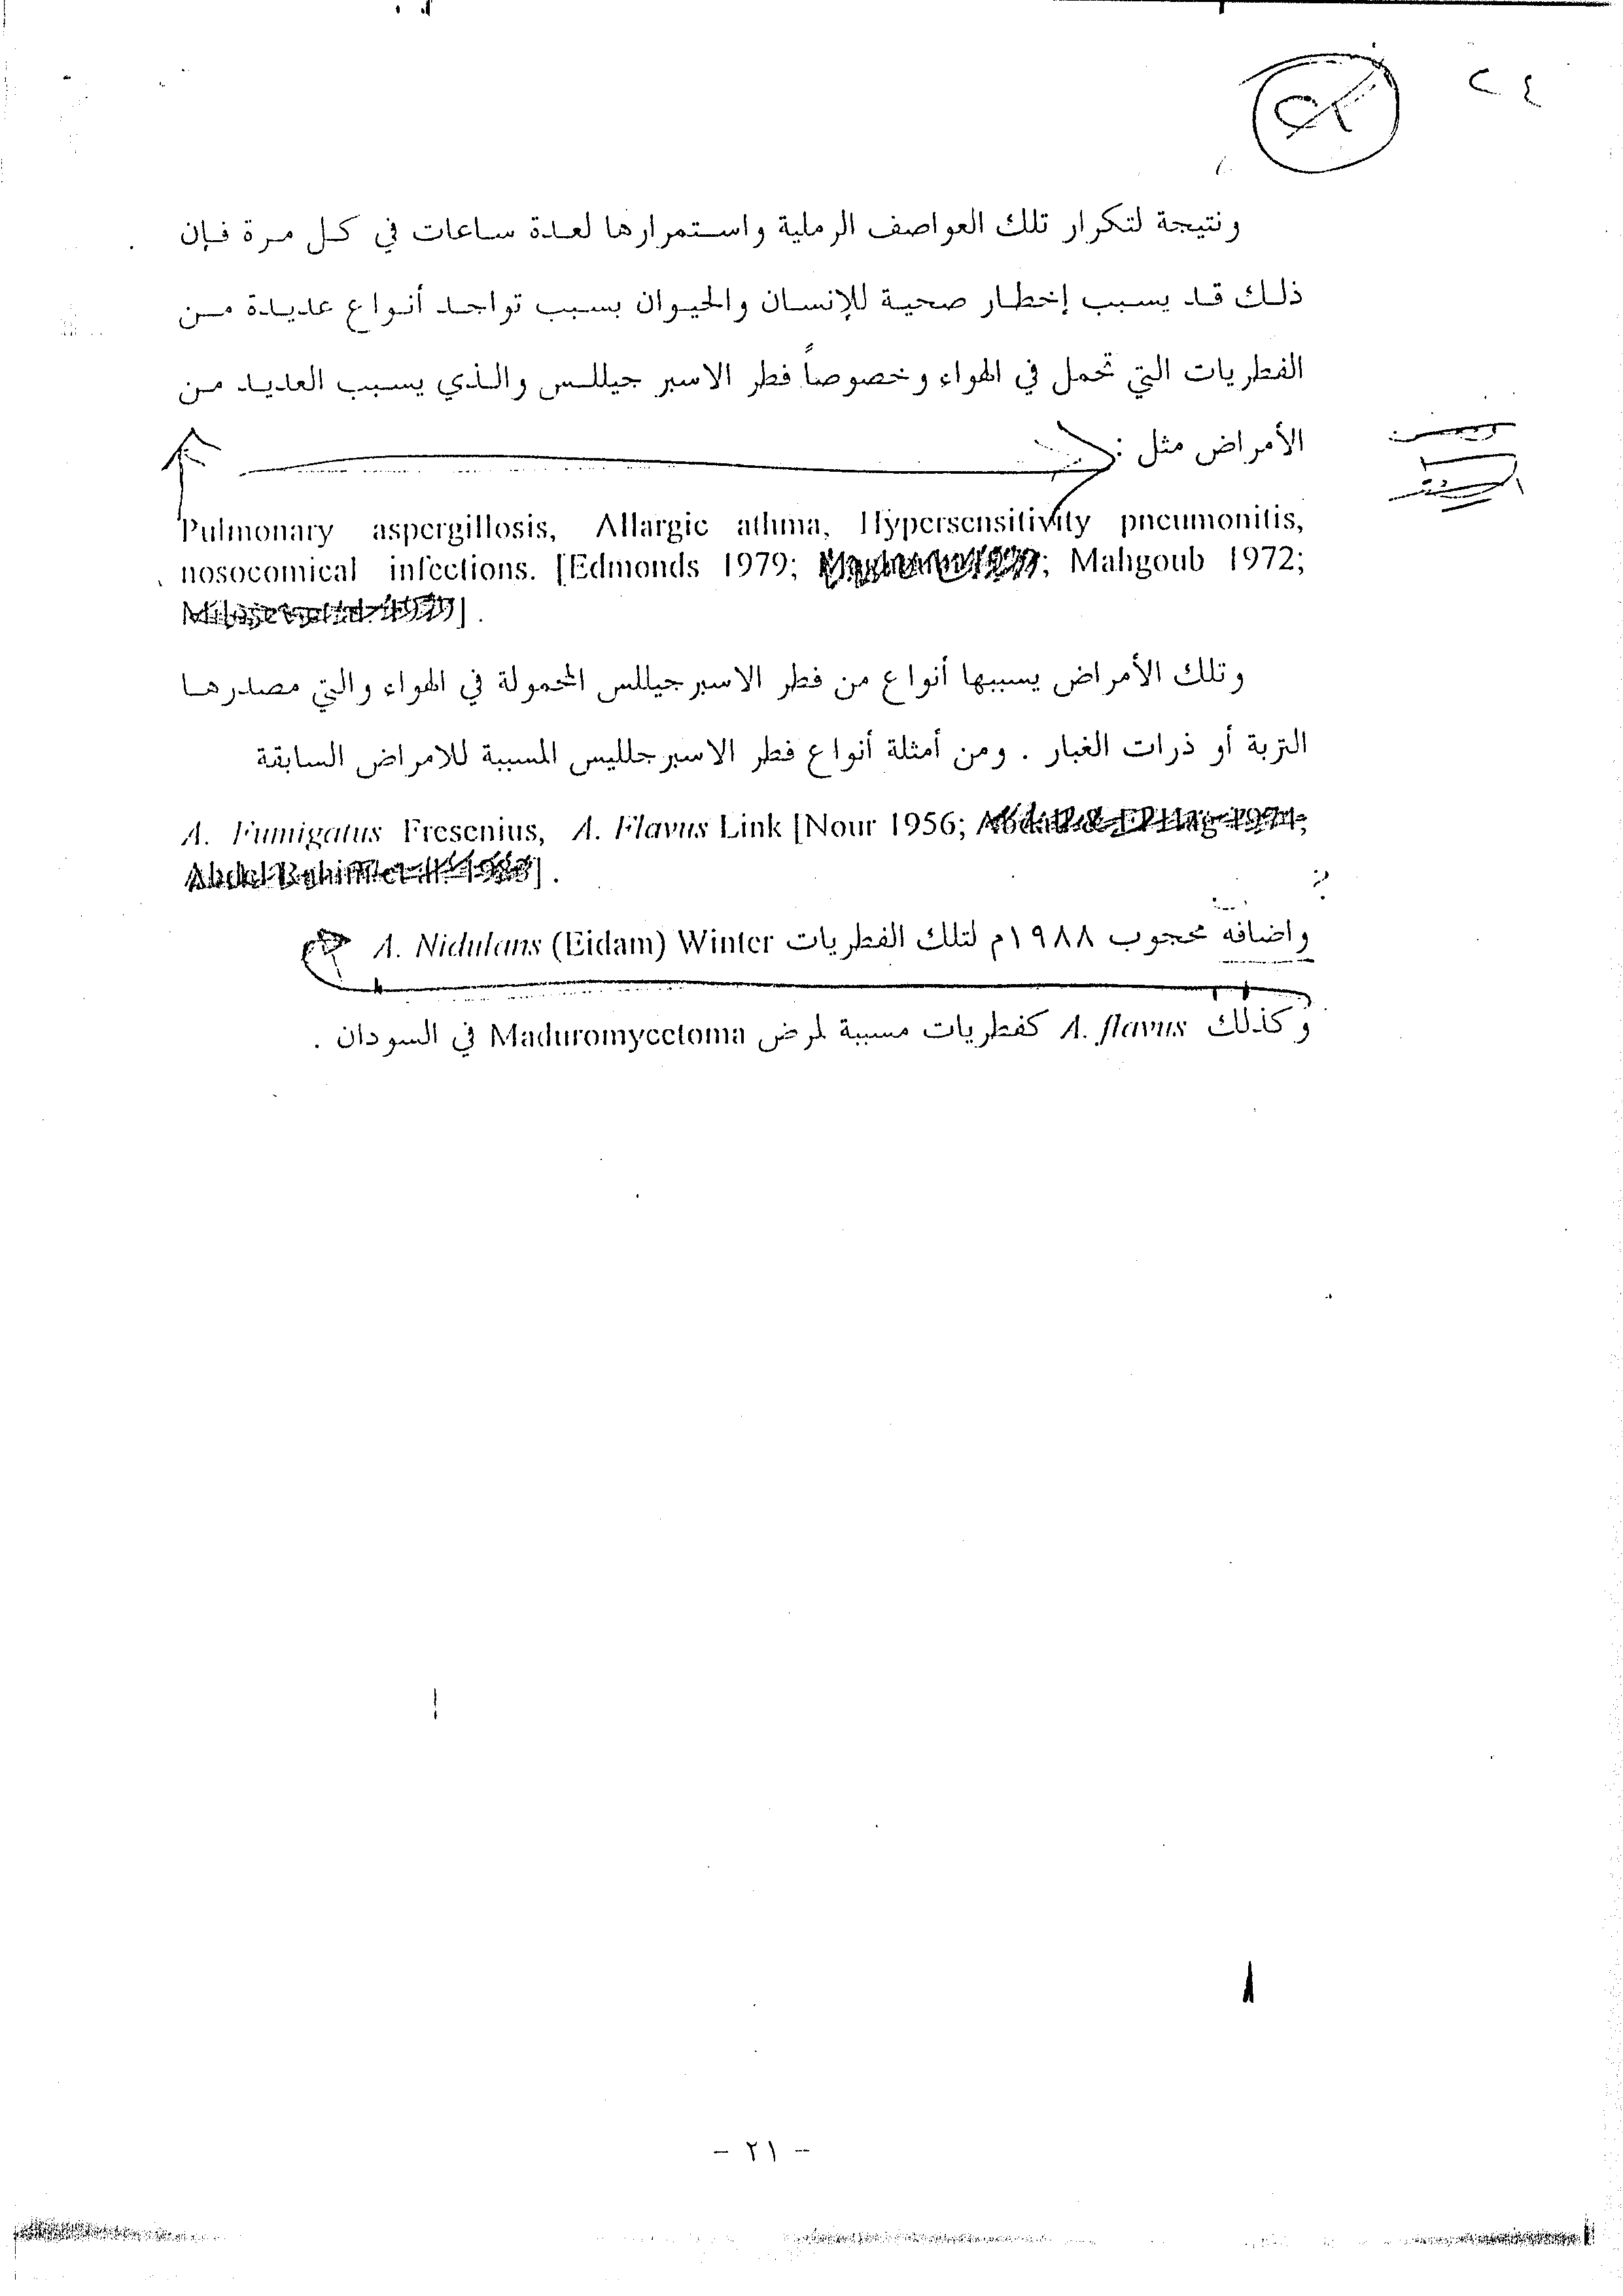 ٢٤
ونتيجة لتكرار تلك العواصف الرملية واستمرارها لعدة ساعات في كل مرة فإن
ذلك قد يسبب إخطار صحية للإنسان والحيوان بسبب تواجد أنواع عديدة من
الفطريات التي تحمل في الهواء وخصوصاً فطر الاسبر جيللس والذي يسبب العديد من
الأمراض مثل :
Pulmonary aspergillosis, Allargic athma, Hypersensitivity pneumonitis,
nosocomical infections. [Edmonds 1979; ; Mahgoub 1972;
] .
وتلك الأمراض يسببها أنواع من فطر الاسبرجيللس المحمولة في الهواء والتي مصدرها
التربة أو ذرات الغبار . ومن أمثلة أنواع فطر الاسبرجلليس المسببة للامراض السابقة
A. Fumigatus Fresenius, A. Flavus Link [Nour 1956;
] .
واضافه محجوب ١٩٨٨م لتلك الفطريات A. Nidulans (Eidam) Winter
وكذلك A. flavus كفطريات مسببة لمرض Maduromycetoma في السودان .
- ٢١ -